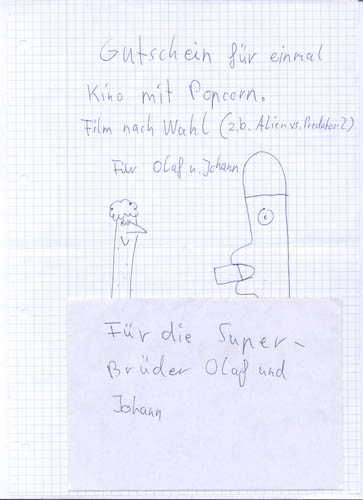 Gutschein für einmal
Kino mit Popcorn.
Film nach Wahl (z.b. Alien vs. Predator 2)
Für Olaf u. Johann
Für die Super-
Brüder Olaf und
Johann